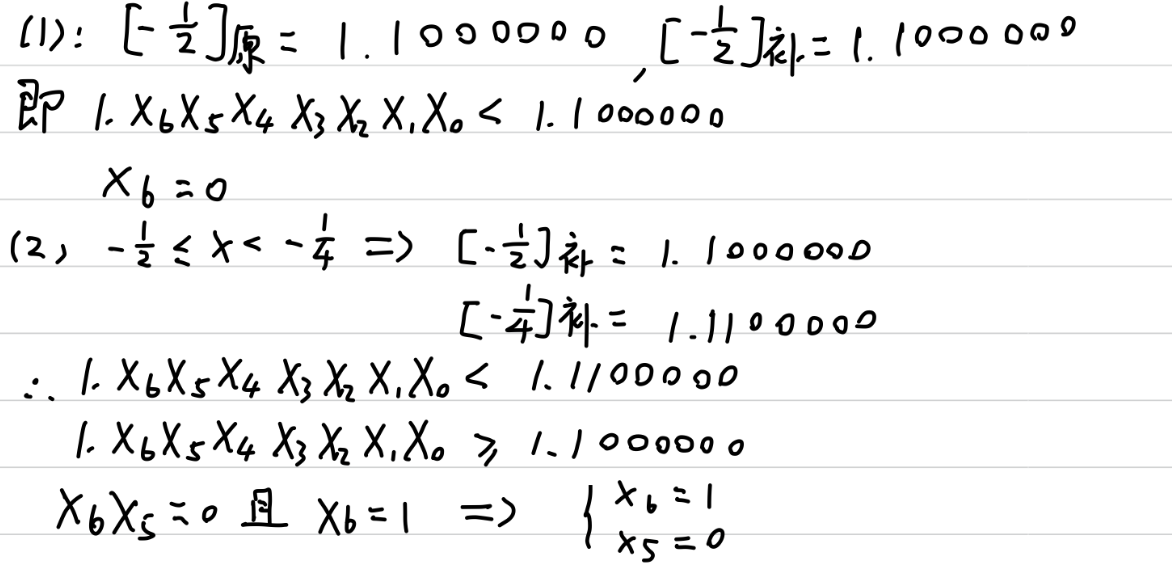 (1): [-1/2]原 = 1.1000000, [-1/2]补 = 1.1000000
即 1.X₆X₅X₄X₃X₂X₁X₀ < 1.1000000
X₆ = 0
(2) -1/2 ≤ X < -1/4 => [-1/2]补 = 1.1000000
[-1/4]补 = 1.1100000
∴ 1.X₆X₅X₄X₃X₂X₁X₀ < 1.1100000
1.X₆X₅X₄X₃X₂X₁X₀ ≥ 1.1000000
X₆X₅ = 0 且 X₆ = 1 => { X₆ = 1
X₅ = 0